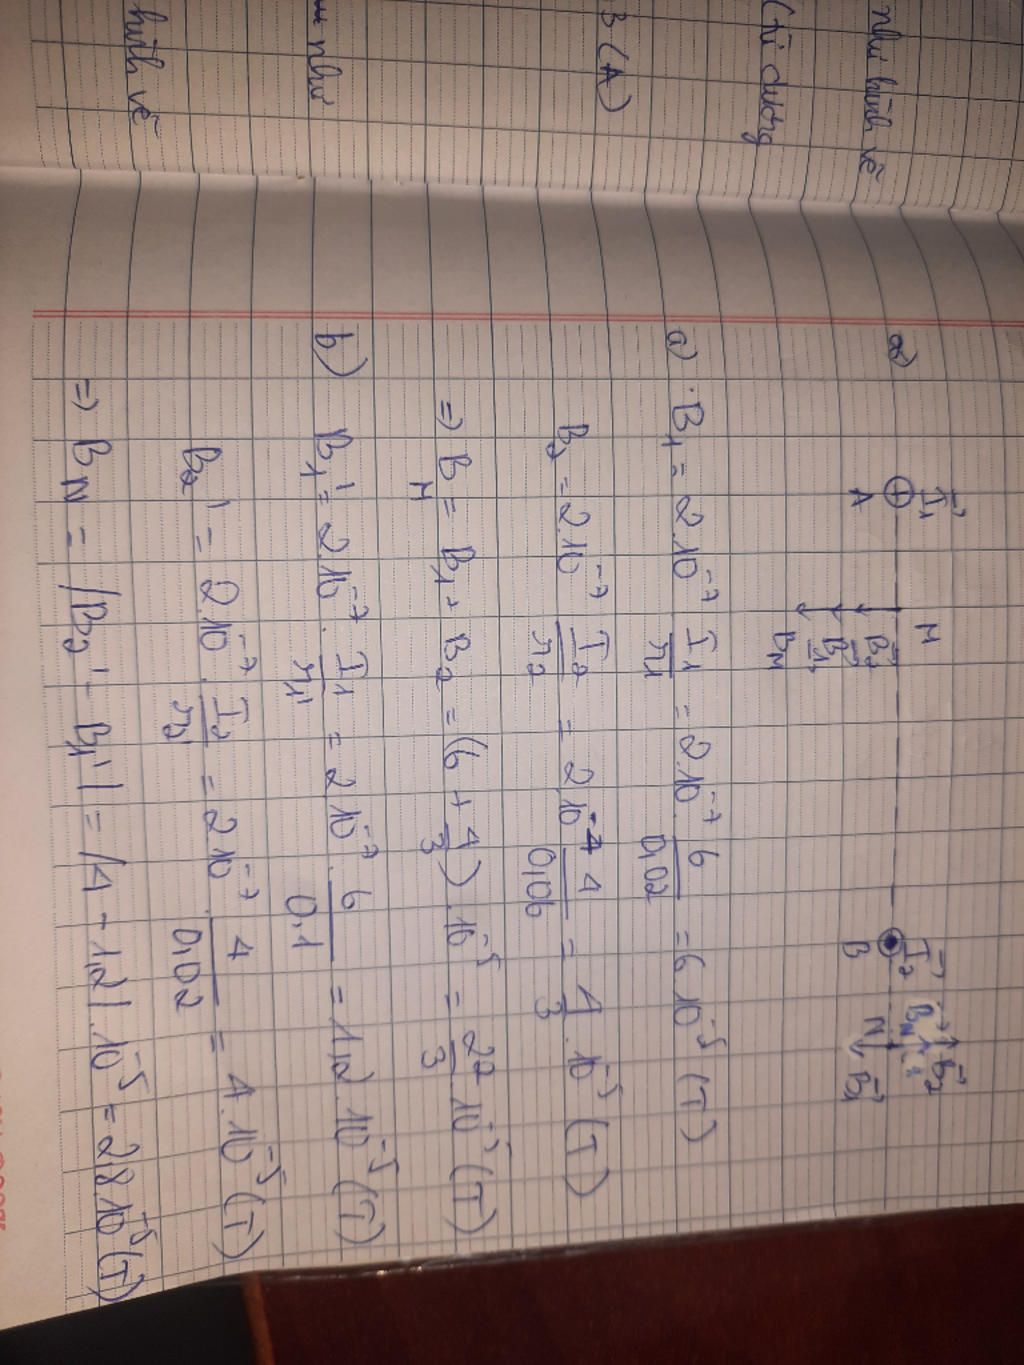 như hình vẽ
(từ dương
3 (A)
như
hình vẽ
a)
I₁ M I₂ B₂
A B₂ B N
B₁ B₁
B_M
a) B₁ = 2.10⁻⁷ I₁/r₁ = 2.10⁻⁷ 6/0,02 = 6.10⁻⁵ (T)
B₂ = 2.10⁻⁷ I₂/r₂ = 2.10⁻⁷ 4/0,06 = 4/3 .10⁻⁵ (T)
=> B_M = B₁ + B₂ = (6 + 4/3).10⁻⁵ = 22/3 .10⁻⁵ (T)
b) B₁' = 2.10⁻⁷ . I₁/r₁' = 2.10⁻⁷ . 6/0,1 = 1,2.10⁻⁵ (T)
B₂' = 2.10⁻⁷ . I₂/r₂' = 2.10⁻⁷ . 4/0,02 = 4.10⁻⁵ (T)
=> B_N = |B₂' - B₁'| = |4 - 1,2|.10⁻⁵ = 2,8.10⁻⁵ (T)